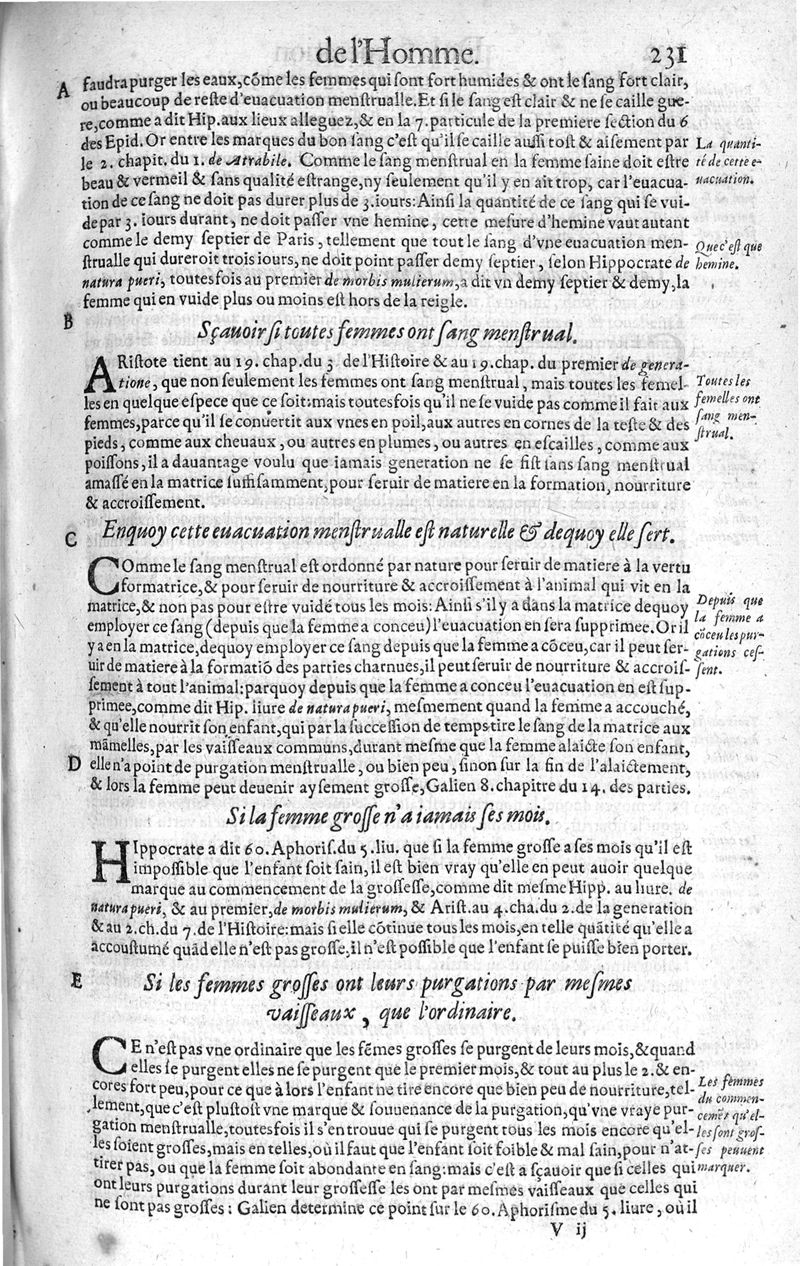 de l'Homme. 231
A faudra purger les eaux, cõme les femmes qui sont fort humides & ont le sang fort clair,
ou beaucoup de reste d'euacuation menstrualle. Et si le sang est clair & ne se caille gue-
re, comme a dit Hip. aux lieux alleguez, & en la 7. particule de la premiere section du 6
des Epid. Or entre les marques du bon sang c'est qu'il se caille aussi tost & aisement par
le 2. chapit. du 1. de Atrabile. Comme le sang menstrual en la femme saine doit estre
beau & vermeil & sans qualité estrange, ny seulement qu'il y en ait trop, car l'euacua-
tion de ce sang ne doit pas durer plus de 3. iours: Ainsi la quantité de ce sang qui se vui-
de par 3. iours durant, ne doit passer vne hemine, cette mesure d'hemine vaut autant
comme le demy septier de Paris, tellement que tout le sang d'vne euacuation men-
strualle qui dureroit trois iours, ne doit point passer demy septier, selon Hippocrate de
natura pueri, toutesfois au premier de morbis mulierum, a dit vn demy septier & demy, la
femme qui en vuide plus ou moins est hors de la reigle.
La quanti-
té de cette e-
uacuation.
Que c'est que
hemine.
B
Sçauoir si toutes femmes ont sang menstrual.
ARistote tient au 19. chap. du 3 de l'Histoire & au 19. chap. du premier de genera-
tione, que non seulement les femmes ont sang menstrual, mais toutes les femel-
les en quelque espece que ce soit: mais toutesfois qu'il ne se vuide pas comme il fait aux
femmes, parce qu'il se conuertit aux vnes en poil, aux autres en cornes de la teste & des
pieds, comme aux cheuaux, ou autres en plumes, ou autres en escailles, comme aux
poissons, il a dauantage voulu que iamais generation ne se fist sans sang menstrual
amassé en la matrice suffisamment, pour seruir de matiere en la formation, nourriture
& accroissement.
Toutes les
femelles ont
sang men-
strual.
C
Enquoy cette euacuation menstrualle est naturelle & dequoy elle sert.
COmme le sang menstrual est ordonné par nature pour seruir de matiere à la vertu
formatrice, & pour seruir de nourriture & accroissement à l'animal qui vit en la
matrice, & non pas pour estre vuidé tous les mois: Ainsi s'il y a dans la matrice dequoy
employer ce sang (depuis que la femme a conceu) l'euacuation en sera supprimee. Or il
y a en la matrice, dequoy employer ce sang depuis que la femme a cõceu, car il peut ser-
uir de matiere à la formatiõ des parties charnues, il peut seruir de nourriture & accrois-
sement à tout l'animal: parquoy depuis que la femme a conceu l'euacuation en est sup-
primee, comme dit Hip. liure de natura pueri, mesmement quand la femme a accouché,
& qu'elle nourrit son enfant, qui par la succession de temps tire le sang de la matrice aux
mãmelles, par les vaisseaux communs, durant mesme que la femme alaicte son enfant,
D elle n'a point de purgation menstrualle, ou bien peu, sinon sur la fin de l'alaictement,
& lors la femme peut deuenir aysement grosse, Galien 8. chapitre du 14. des parties.
Depuis que
la femme a
cõceu les pur-
gations ces-
sent.
Si la femme grosse n'a iamais ses mois.
HIppocrate a dit 60. Aphoris. du 5. liu. que si la femme grosse a ses mois qu'il est
impossible que l'enfant soit sain, il est bien vray qu'elle en peut auoir quelque
marque au commencement de la grossesse, comme dit mesme Hipp. au liure. de
natura pueri, & au premier, de morbis mulierum, & Arist. au 4. cha. du 2. de la generation
& au 2. ch. du 7. de l'Histoire: mais si elle cõtinue tous les mois, en telle quãtité qu'elle a
accoustumé quãd elle n'est pas grosse, il n'est possible que l'enfant se puisse bien porter.
E
Si les femmes grosses ont leurs purgations par mesmes
vaisseaux, que l'ordinaire.
CE n'est pas vne ordinaire que les fẽmes grosses se purgent de leurs mois, & quand
elles se purgent elles ne se purgent que le premier mois, & tout au plus le 2. & en-
cores fort peu, pour ce que à lors l'enfant ne tire encore que bien peu de nourriture, tel-
lement, que c'est plustost vne marque & souuenance de la purgation, qu'vne vraye pur-
gation menstrualle, toutesfois il s'en trouue qui se purgent tous les mois encore qu'el-
les soient grosses, mais en telles, où il faut que l'enfant soit foible & mal sain, pour n'at-
tirer pas, ou que la femme soit abondante en sang: mais c'est a sçauoir que si celles qui
ont leurs purgations durant leur grossesse les ont par mesmes vaisseaux que celles qui
ne sont pas grosses: Galien determine ce point sur le 60. Aphorisme du 5. liure, où il
Les femmes
du commen-
cemẽt qu'el-
les sont gros-
ses peuuent
marquer.
V ij